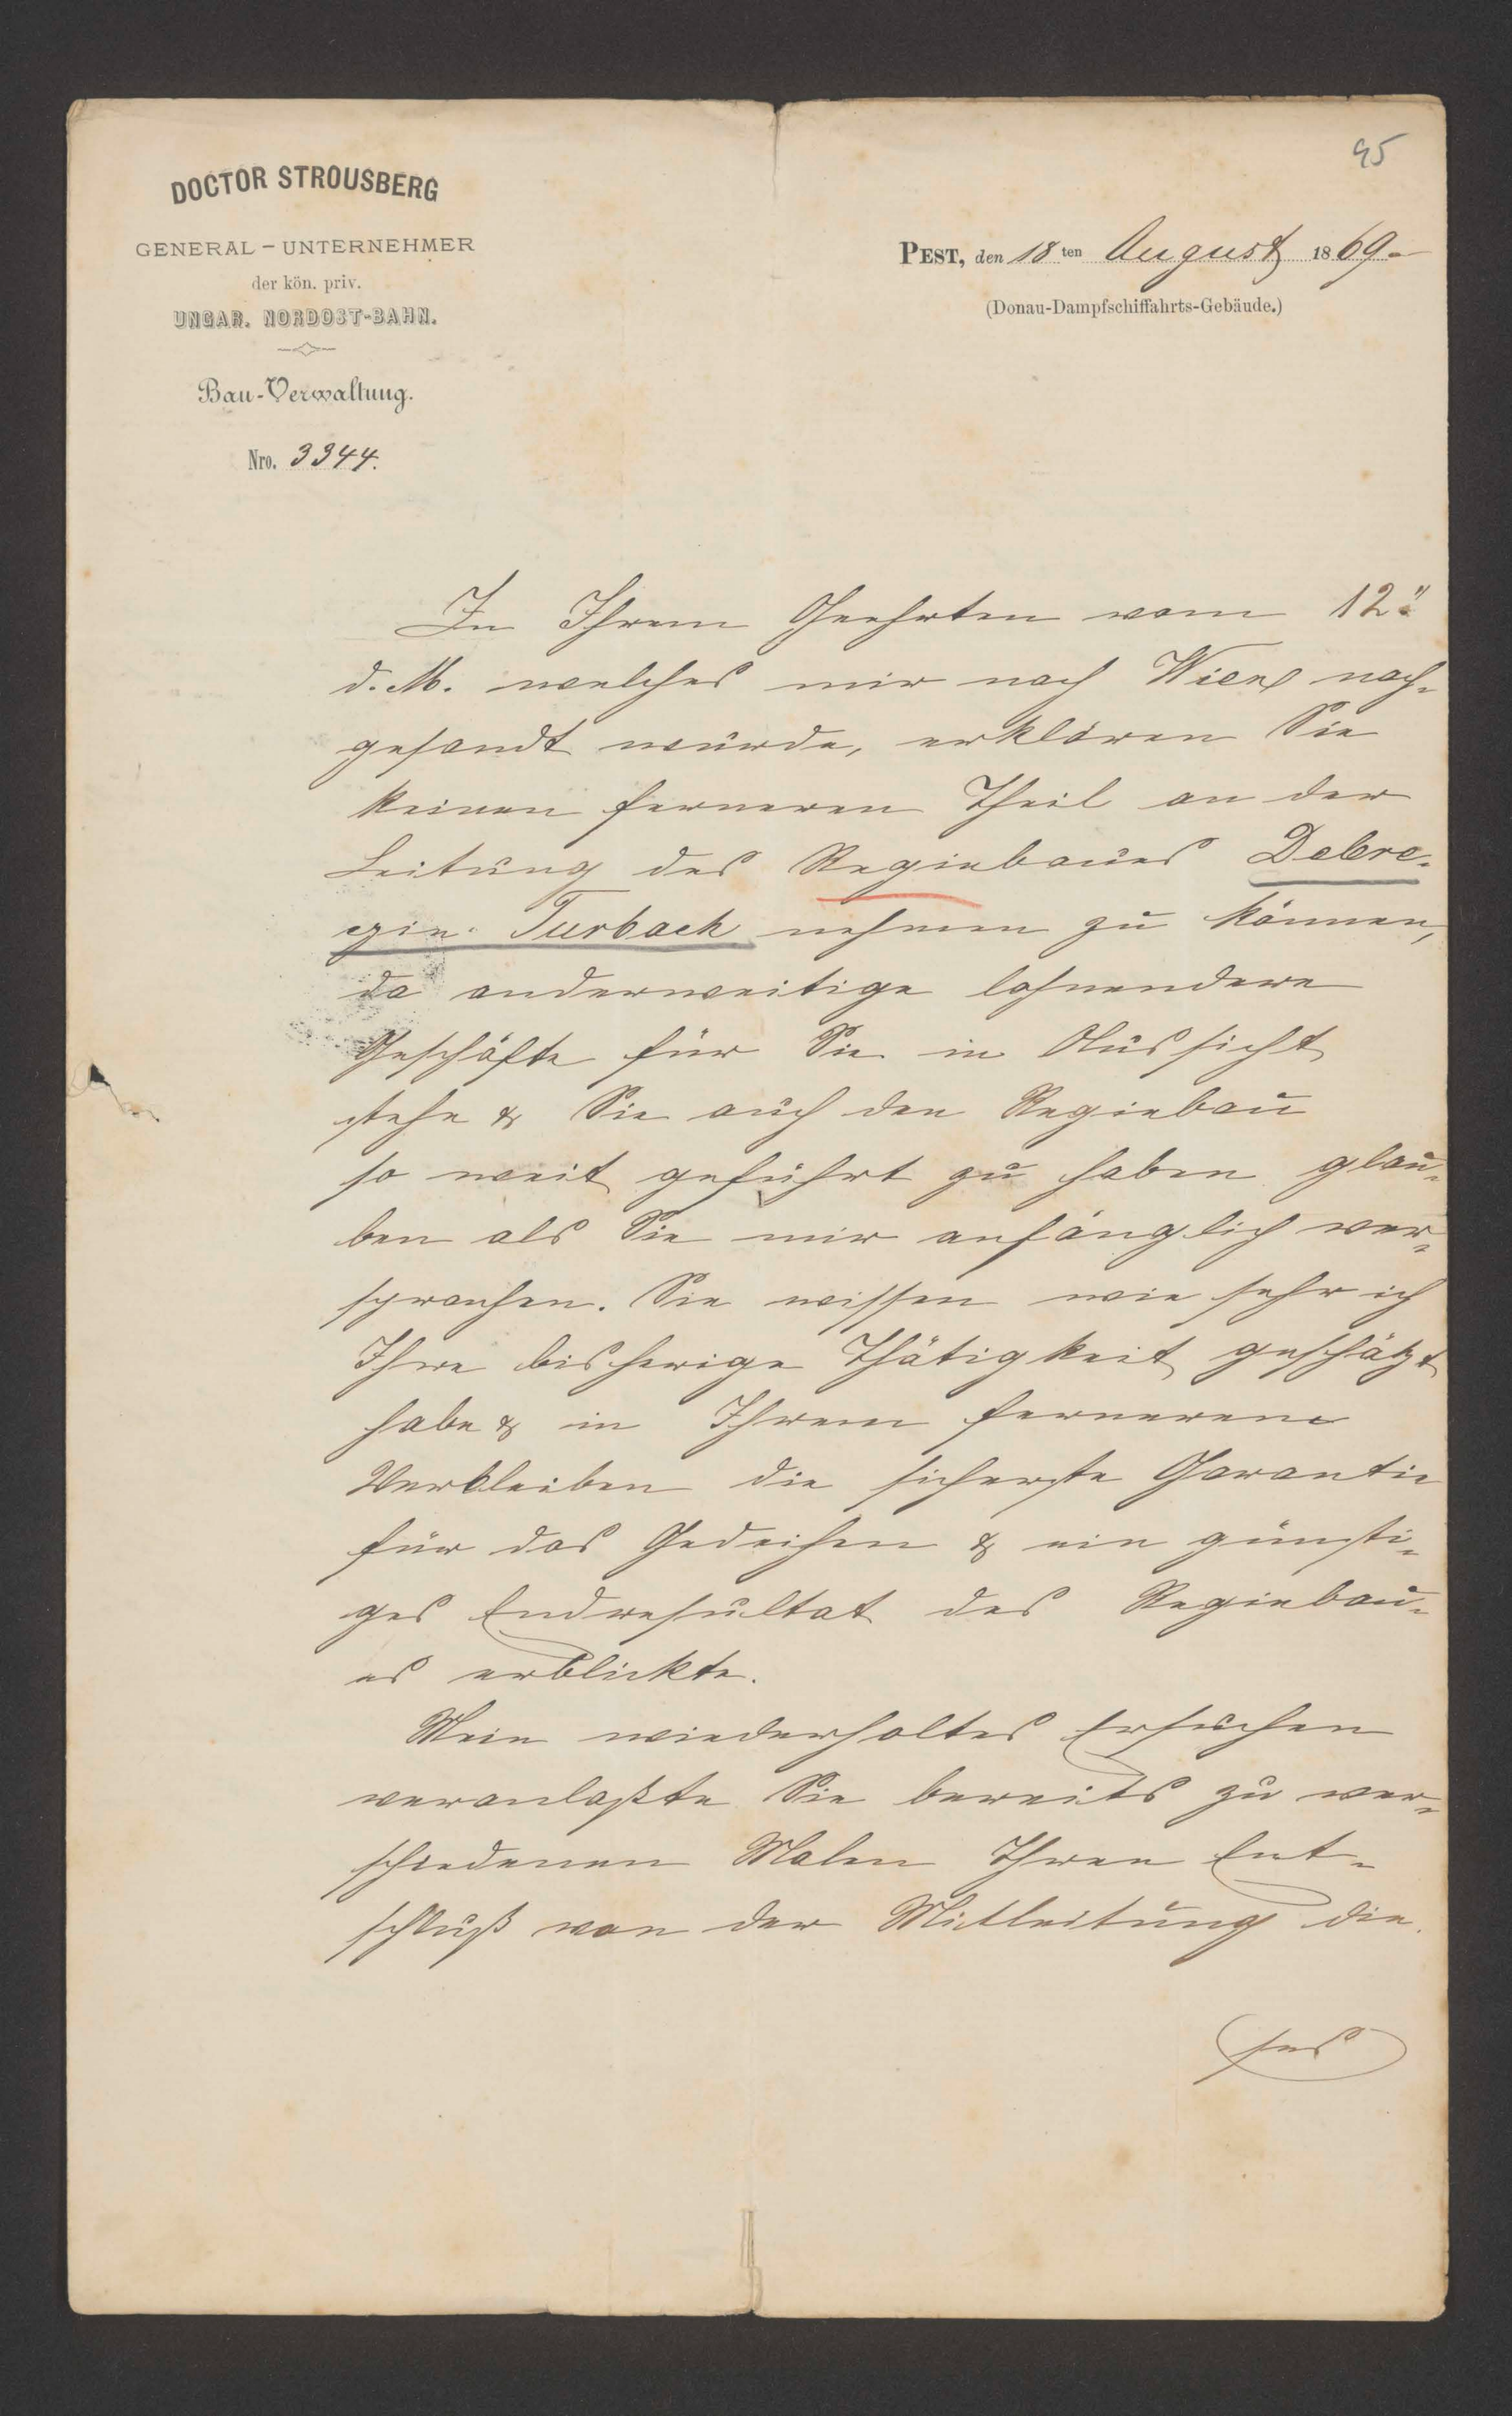 95
DOCTOR STROUSBERG
GENERAL-UNTERNEHMER
der kön. priv.
UNGAR. NORDOST-BAHN.
Bau-Verwaltung.
Nro. 3344.
PEST, den 18ten August 1869.
(Donau-Dampfschiffahrts-Gebäude.)
In Ihrem Geehrten vom 12.
d. M. welches mir nach Wien nach-
gesandt wurde, erklären Sie
keinen ferneren Theil an der
Leitung des Regiebaues Debre-
czin-Turbach nehmen zu können,
da anderweitige lohnendere
Geschäfte für Sie in Aussicht
stehe & Sie auch den Regiebau
so weit geführt zu haben glau-
ben als Sie mir anfänglich ver-
sprochen. Sie wissen wie sehr ich
Ihre bisherige Thätigkeit geschätzt
habe & in Ihrem ferneren
Verbleiben die sicherste Garantie
für das Gedeihen & ein günsti-
ges Endresultat des Regiebau-
es erblickte.
Mein wiederholtes Ersuchen
veranlaßte Sie bereits zu ver-
schiedenen Malen Ihren Ent-
schluß von der Mitleitung die-
ses